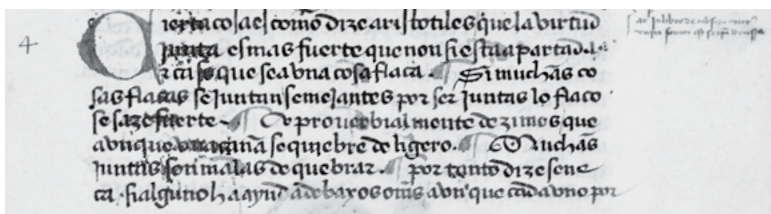 4
Cierta cosa es como dize aristotiles que la virtud
junta es mas fuerte que non si esta apartada
que sea vna cosa flaca. Si muchas co
sas flacas se iuntan semejantes por ser iuntas lo flaco
se faze fuerte. E prouerbialmente dezimos que
avnque vna se quiebre de ligero. Muchas
iuntas son malas de quebrar. por tanto dize sene
ca. si alguno ha ayuda de baxos omes avnque cada vno por